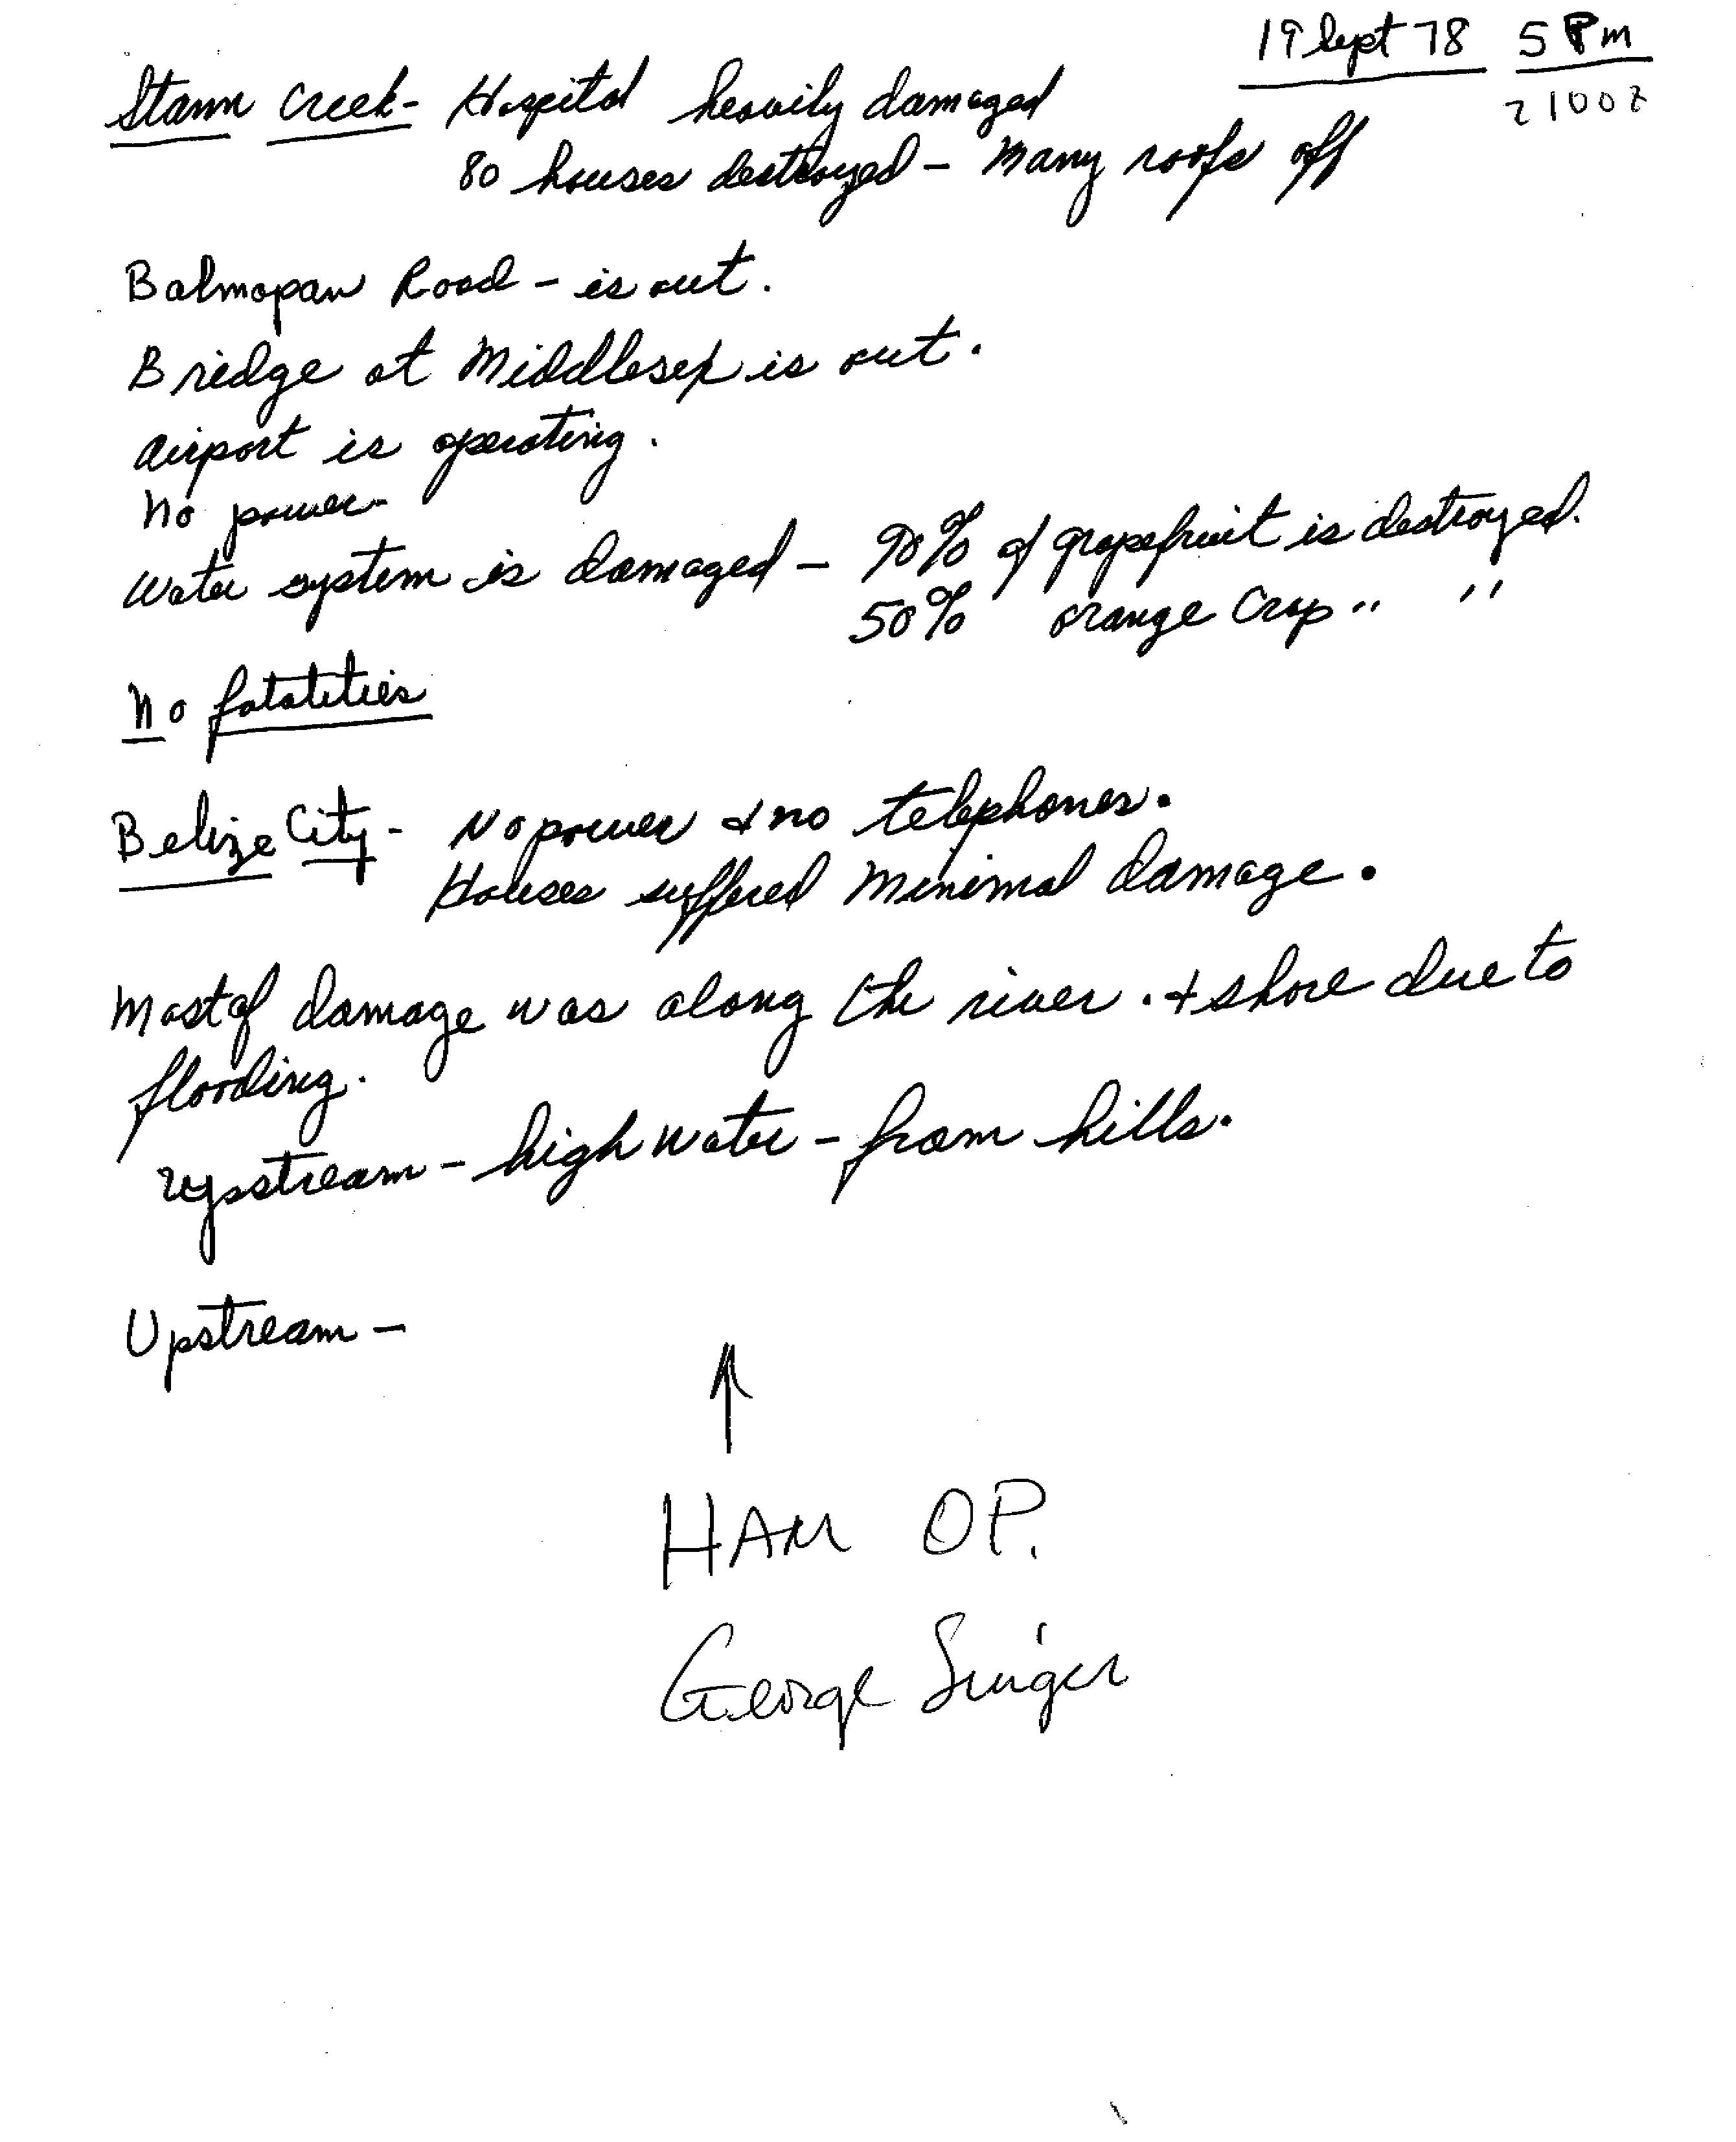 19 Sept 78 5 Pm
2100Z
Stann Creek - Hospital heavily damaged
80 houses destroyed - Many roofs off
Balmopan Road - is out.
Bridge at Middlesex is out.
Airport is operating.
No power -
Water system is damaged - 90% of grapefruit is destroyed.
50% orange Crop " "
No fatalities
Belize City - No power & no telephones.
Houses suffered Minimal damage.
Most of damage was along the river. & shore due to
flooding.
Upsstream - high water - from hills.
Upstream -
↑
HAM OP.
George Singer